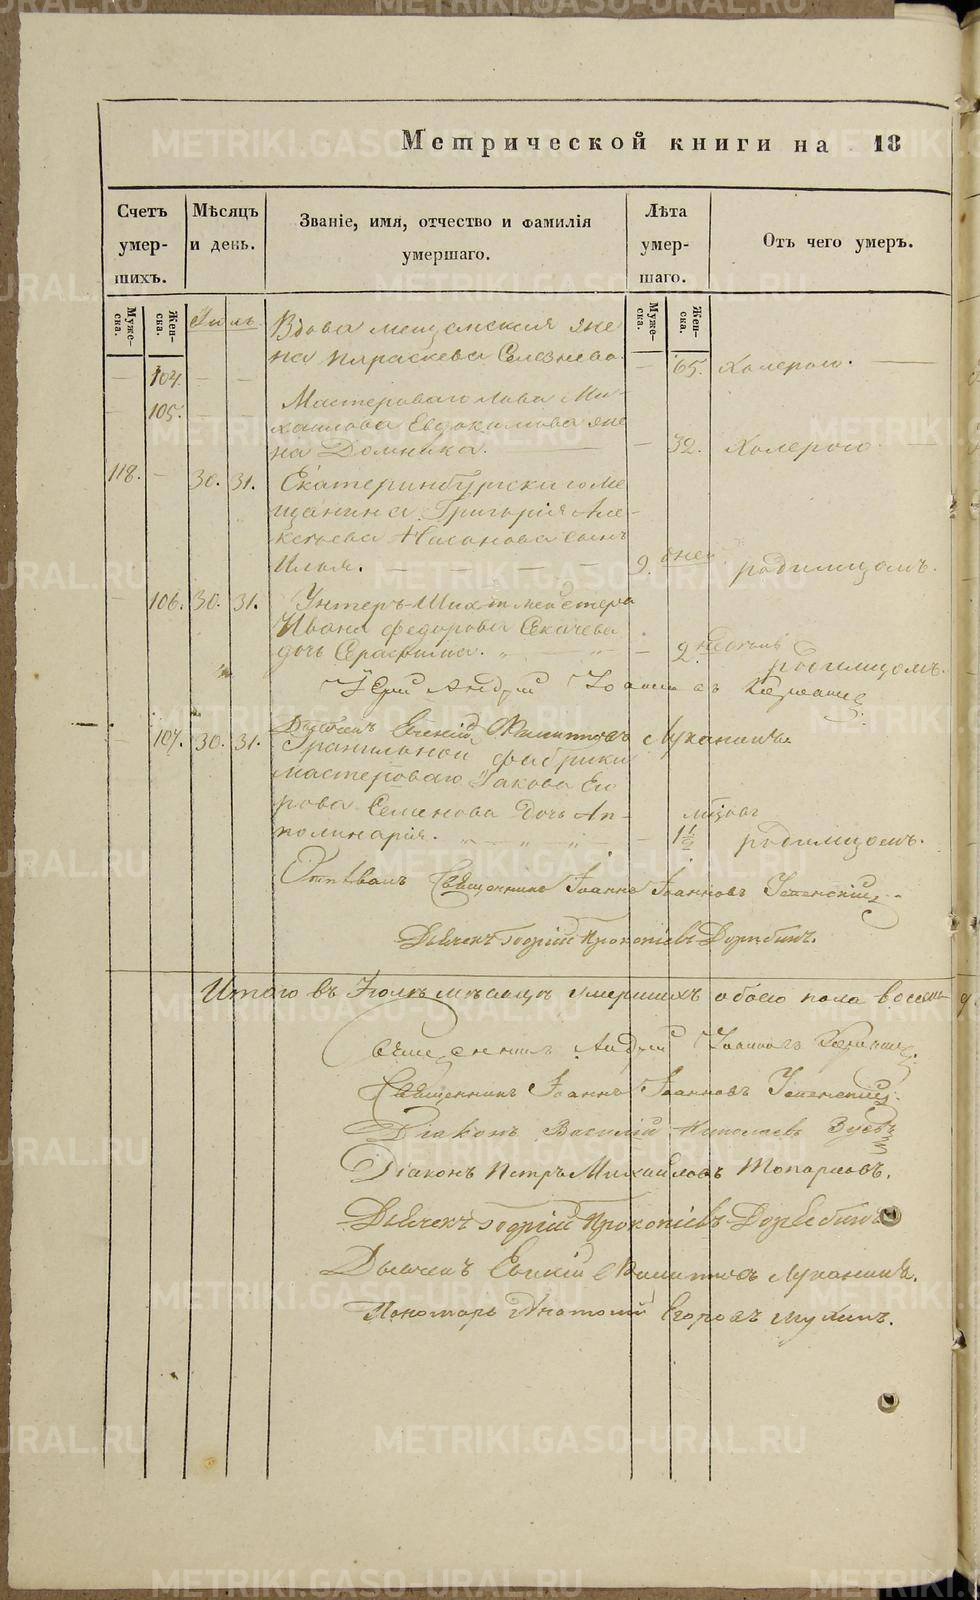 Метрической книги на 18
Счетъ умер- шихъ.
Мѣсяцъ и день.
Званіе, имя, отчество и фамилія умершаго.
Лѣта умер- шаго.
Отъ чего умеръ.
Муже- ска.
Жен- ска.
Муже- ска.
Жен- ска.
Іюль
Вдова мещанская же-
на Параскева Селезнева
104. 65. Холерою.
105. Мастероваго Ми-
хаилова Евдокимова же-
на Домника. 32. Холерою
118. 30. 31. Екатеринбургскаго ме-
щанина Григорія Але-
ксѣева сынъ
Илья. 9. дней родимцомъ.
106. 30. 31. Унтеръ-Шихтмейстера
Ивана Федорова Секачева
дочь Серафима. 2 родимцомъ.
Іерей Андрей Іоанновъ
Дьячекъ Евгеній Луканинъ.
107. 30. 31. Гранильной фабрики
мастероваго Іакова Его-
рова Семенова дочь Ап- мѣсяцъ
полинарія. 1½ родимцомъ.
Отпѣвалъ Священникъ Іоаннъ Іоанновъ Успенскій
Дьячекъ Георгій Прокопіевъ
Итого въ Іюлѣ мѣсяцѣ умершихъ обоего пола восемь
Священникъ Андрей Іоанновъ
Священникъ Іоаннъ Іоанновъ Успенскій
Діаконъ Василій Николаевъ
Діаконъ Петръ Михаиловъ Топорковъ.
Дьячекъ Георгій Прокопіевъ
Дьячекъ Евгеній Луканинъ.
Пономарь Анатолій Егоровъ Мухинъ.
METRIKI.GASO-URAL.RU